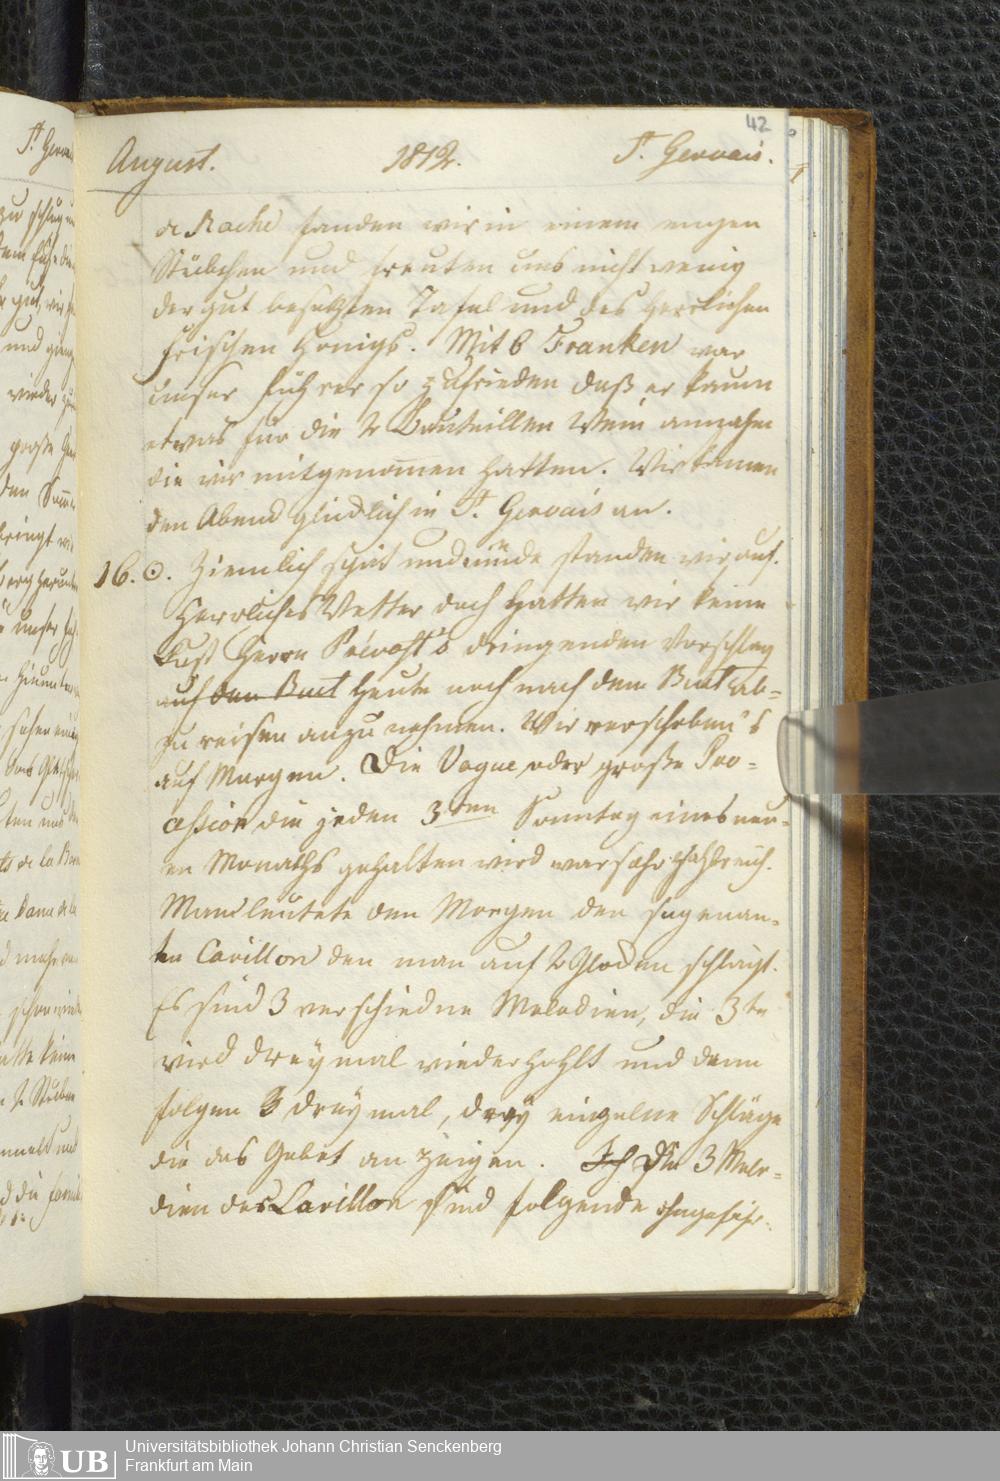 42
August. 1812. St. Gervais.
de Roche fanden wir in einem engen
Stübchen und freuten uns nicht wenig
der gut besetzten Tafel und des herrlichen
frischen Honigs. Mit 6 Franken war
unser Führer so zufrieden daß er kaum
etwas für die 2 Bouteillen Wein annahm
die wir mitgenommen hatten. Wir kamen
den Abend glücklich in St. Gervais an.
16. ☉. Ziemlich spät und müde standen wir auf.
Herrliches Wetter doch hatten wir keine
Lust Herrn Prévost's dringenden Vorschlag
auf den Buet heute noch nach dem Buet ab=
zu reisen anzunehmen. Wir verschoben's
auf Morgen. Die Vogue oder große Pro=
cession die jeden 3ten Sonntag eines neu=
en Monaths gehalten wird war sehr zahlreich.
Man leutete den Morgen den sogenan=
ten Carillon den man auf 2 Glocken schlägt.
Es sind 3 verschiedne Melodien, die 3te
wird dreymal wiederhohlt und dann
folgen 3 dreymal, drey einzelne Schläge
die das Gebet anzeigen. Die 3 Melo=
dien des Carillon sind folgende ohngefähr.
Universitätsbibliothek Johann Christian Senckenberg
Frankfurt am Main
UB